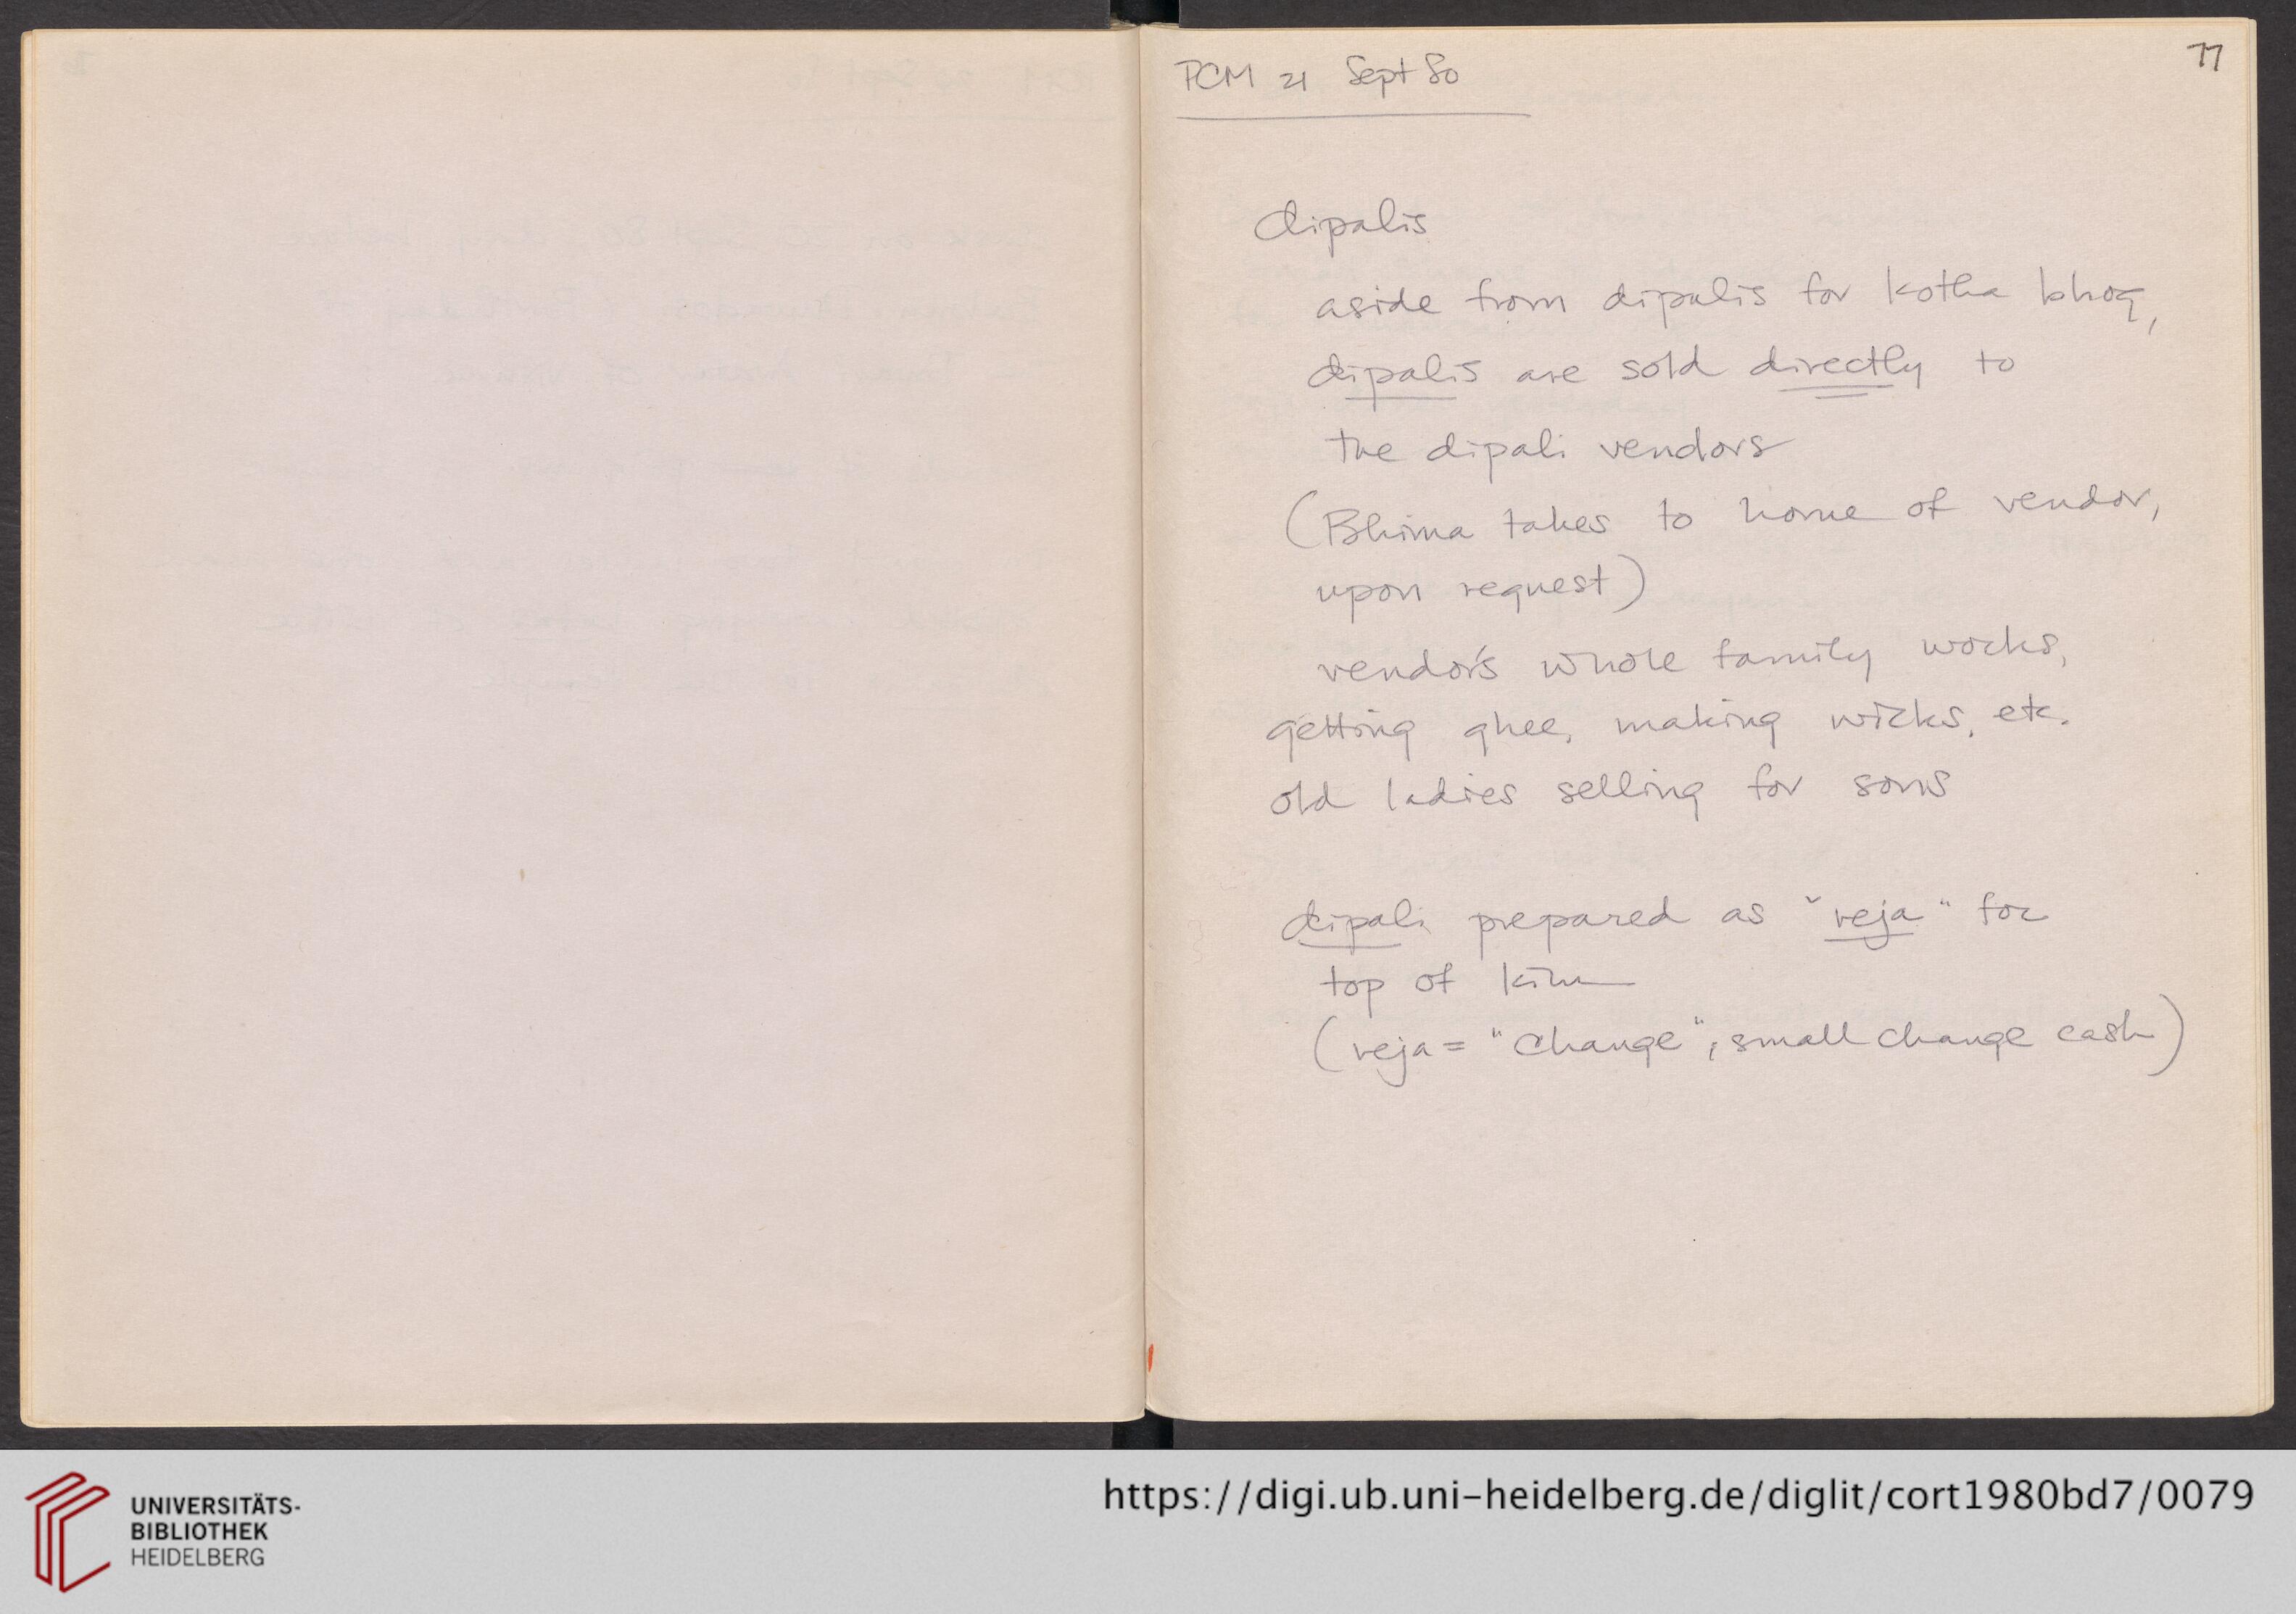 PCM 21 Sept 80
77
dipalis
aside from dipalis for kotha bhog,
dipalis are sold directly to
the dipali vendors
(Bhima takes to home of vendor,
upon request)
vendor's whole family works,
getting ghee, making wicks, etc.
old ladies selling for sons
dipali prepared as "veja" for
top of kiln
(veja = "change", small change cash)
UNIVERSITÄTS-
BIBLIOTHEK
HEIDELBERG
https://digi.ub.uni-heidelberg.de/diglit/cort1980bd7/0079